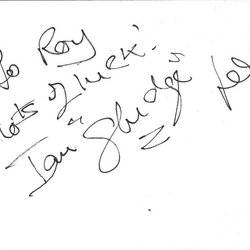 To Roy
Lots of luck!
Ian "Sludge"
Lee